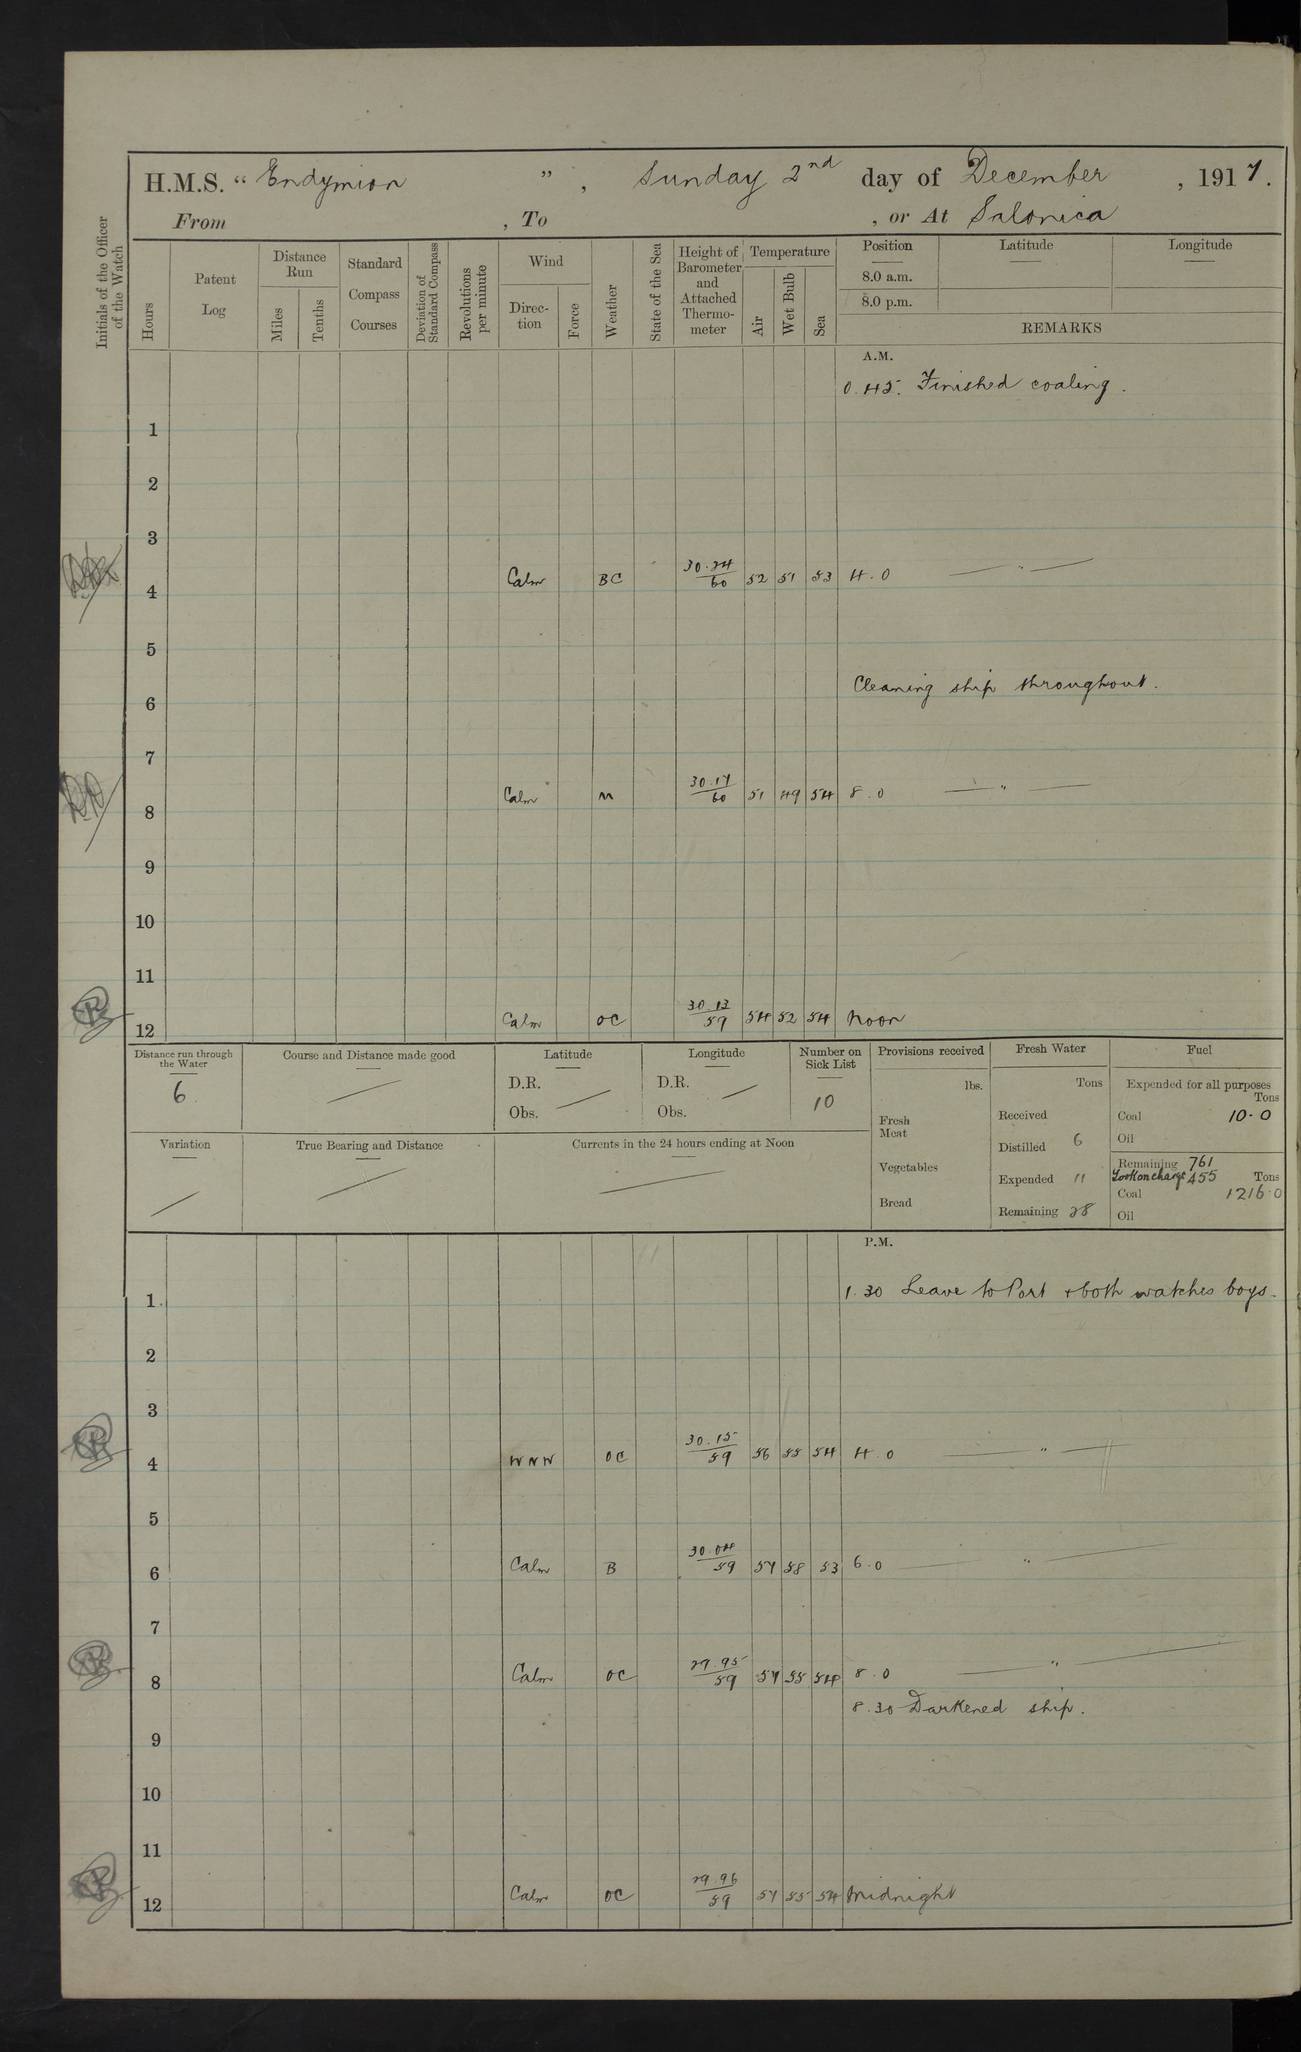 H.M.S. " Endymion ", Sunday 2nd day of December, 1917.
From , To , or At Salonica
Initials of the Officer of the Watch
Hours
Patent Log
Distance Run
Miles
Tenths
Standard Compass Courses
Deviation of Standard Compass
Revolutions per minute
Wind
Direc-tion
Force
Weather
State of the Sea
Height of Barometer and Attached Thermo-meter
Temperature
Air
Wet Bulb
Sea
Position Latitude Longitude
8.0 a.m.
8.0 p.m.
REMARKS
A.M.
0.45. Finished coaling.
1
2
3
4 Calm BC 30.24/60 52 51 53 4.0 — " —
5
Cleaning ship throughout.
6
7
8 Calm M 30.17/60 51 49 54 8.0 — " —
9
10
11
12 Calm OC 30.13/59 54 52 54 Noon
Distance run through the Water
6
Course and Distance made good
Latitude
D.R.
Obs.
Longitude
D.R.
Obs.
Number on Sick List
10
Provisions received
lbs.
Fresh Meat
Vegetables
Bread
Fresh Water
Tons
Received
Distilled 6
Expended 11
Remaining 28
Fuel
Expended for all purposes
Tons
Coal 10.0
Oil
Remaining 761
Took on charge 455 Tons
Coal 1216.0
Oil
Variation
True Bearing and Distance
Currents in the 24 hours ending at Noon
P.M.
1.30 Leave to Port + both watches boys.
1
2
3
4 WNW OC 30.15/59 56 55 54 4.0 — " —
5
6 Calm B 30.04/59 57 58 53 6.0 — " —
7
8 Calm OC 29.95/59 57 55 54 8.0 — " —
8.30 Darkened ship.
9
10
11
12 Calm OC 29.96/59 57 55 54 Midnight